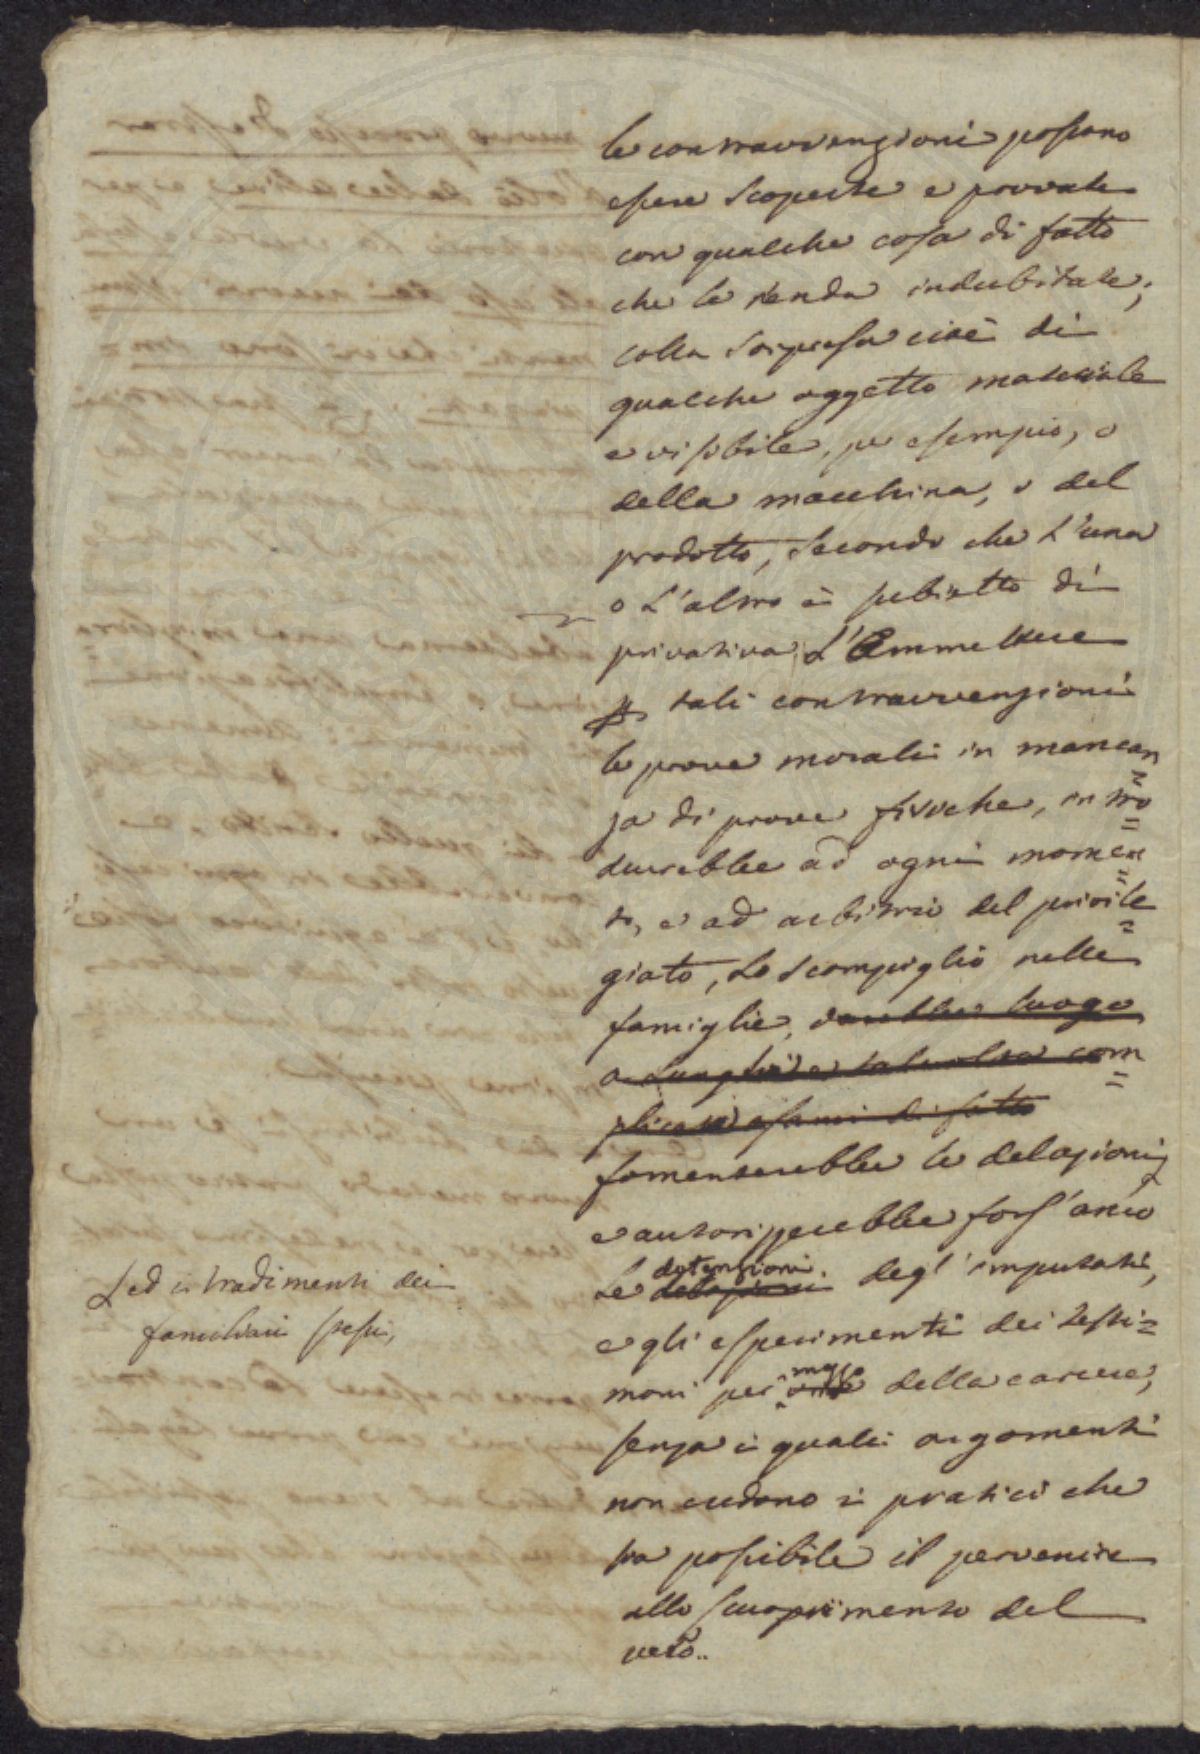 le contravvenzioni possano
essere scoperte e provate
con qualche cosa di fatto
che le renda indubitate;
colla sorpresa cioè di
qualche oggetto materiale
e visibile, per esempio, o
della macchina, o del
prodotto, secondo che l'una
o l'altro è subietto di
privativa. L'Ammettere
tali contravvenzioni
le prove morali in mancan
za di prove fisiche, intro
durrebbe ad ogni momen
to, e ad arbitrio del privile
giato, lo scompiglio nelle
famiglie, darebbe luogo
a lunghi e talvolta com
plicati esami di fatto
fomenterebbe le delazioni
ed i tradimenti dei
familiari stessi,
e autorizzerebbe fors'anco
le detenzioni degl'imputati,
e gli esperimenti dei testi=
moni per mezzo della carcere,
senza i quali argomenti
non credono i pratici che
sia possibile il pervenire
allo scuoprimento del
vero..